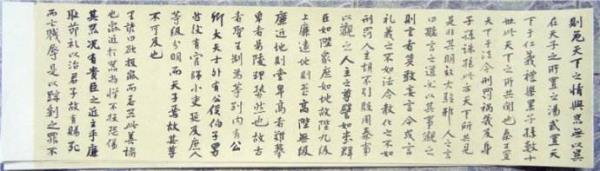 則危天下之情與器無以異
在天子之所置之湯武置天
下于仁義禮樂累子孫數十
世此天下之所共聞也秦王置
天下于法令刑罰禍幾及身
子孫誅絕此天下所共見
是非其明效大驗邪人之言
曰聽言之道必以其事觀之
則言者莫敢妄言今或言
禮義之不如法令教化之不如
刑罰人主胡不引殷周秦事
以觀之人主之尊譬如堂群
臣如陛眾庶如地故陛九級
上廉遠地則堂高陛無級
廉近地則堂卑高者難攀
卑者易陵理勢然也故古
者聖王制為等列內有公
卿大夫士外有公侯伯子男
然後有官師小吏延及庶人
等級分明而天子焉故其尊
不可及也
里諺曰欲投鼠而忌器此善諭
也鼠近於器尚憚不投恐傷
其器況有貴臣之近主乎廉
恥節禮以治君子故有賜死
而亡戮辱是以黥劓之罪不